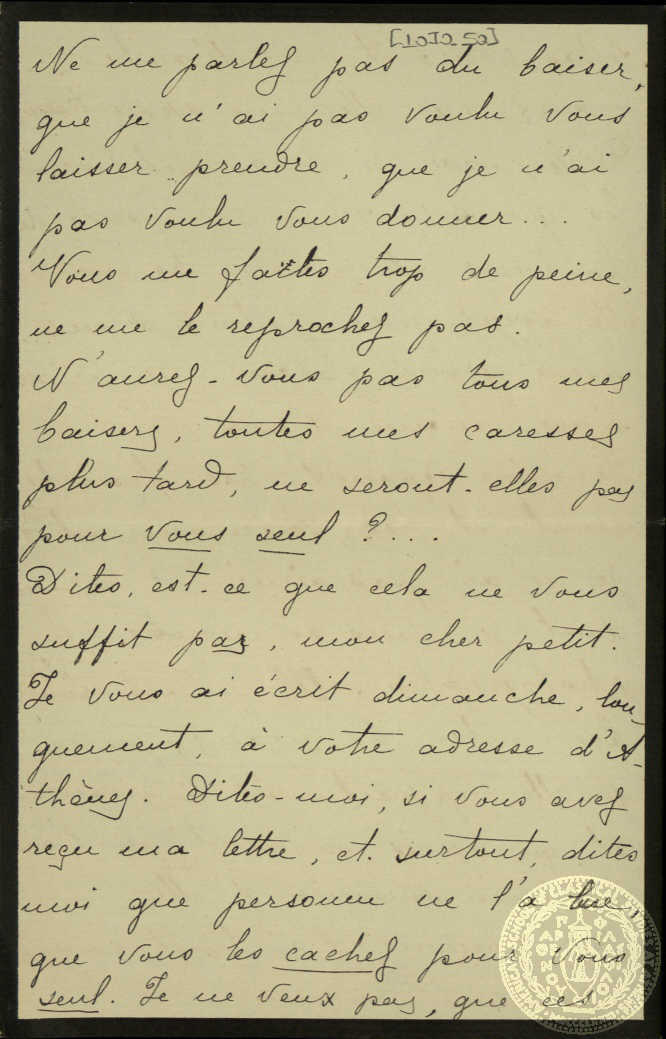 Ne me parlez pas du baiser,
que je n'ai pas voulu vous
laisser prendre, que je n'ai
pas voulu vous donner...
Vous me faites trop de peine,
ne me le reprochez pas.
N'aurez-vous pas tous mes
baisers, toutes mes caresses
plus tard, ne seront-elles pas
pour vous seul ?...
Dites, est-ce que cela ne vous
suffit pas, mon cher petit.
Je vous ai écrit dimanche, lon-
guement, à votre adresse d'A-
thènes. Dites-moi, si vous avez
reçu ma lettre, et surtout, dites
moi que personne ne l'a lue,
que vous les cachez pour vous
seul. Je ne veux pas, que ces